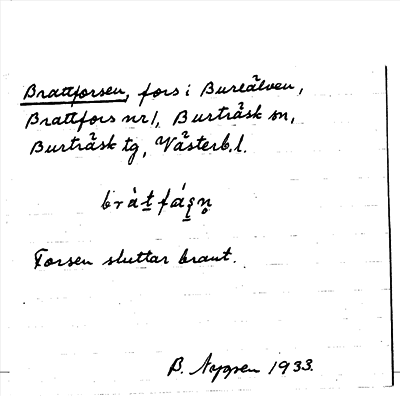 Brattforsen, fors i Bureälven,
Brattfors nr 1, Burträsk sn,
Burträsk tg, Västerb. l.
Forsen sluttar brant.
B. Nygren 1933.